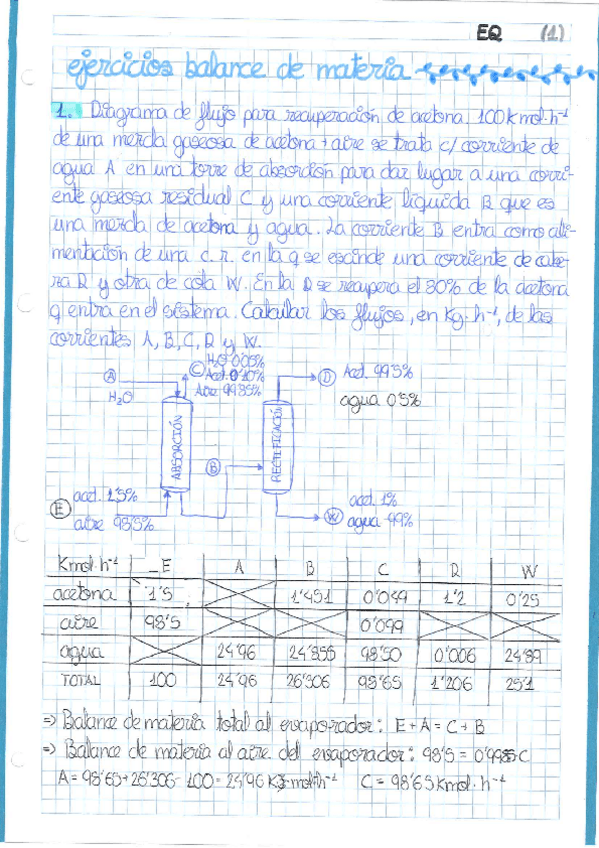 EQ (1)
ejercicios balance de materia
1. Diagrama de flujo para recuperación de acetona. 100 Kmol·h⁻¹
de una mezcla gaseosa de acetona + aire se trata c/ corriente de
agua A en una torre de absorción para dar lugar a una corri-
ente gaseosa residual C y una corriente líquida B que es
una mezcla de acetona y agua. La corriente B entra como ali-
mentación de una c.r. en la q se escinde una corriente de cabe-
ra D y otra de cola W. En la D se recupera el 80% de la acetona
q entra en el sistema. Calcular los flujos, en Kg·h⁻¹, de las
corrientes A, B, C, D y W.
A
H₂O
C
H₂O 0'05%
Acet. 0'10%
Aire 99'85%
D Acet. 99'5%
agua 0'5%
ABSORCIÓN
RECTIFICACIÓN
B
E
acet. 1'5%
aire 98'5%
W
acet. 1%
agua 99%
Kmol·h⁻¹ E A B C D W
acetona 1'5 1'451 0'049 1'2 0'25
aire 98'5 0'099
agua 24'96 24'855 98'50 0'006 24'89
TOTAL 100 24'96 26'306 98'65 1'206 25'1
⇒ Balance de materia total al evaporador: E + A = C + B
⇒ Balance de materia al aire del evaporador: 98'5 = 0'9985 C
A = 98'65 + 26'306 - 100 = 24'96 mol·h⁻¹ C = 98'65 Kmol·h⁻¹